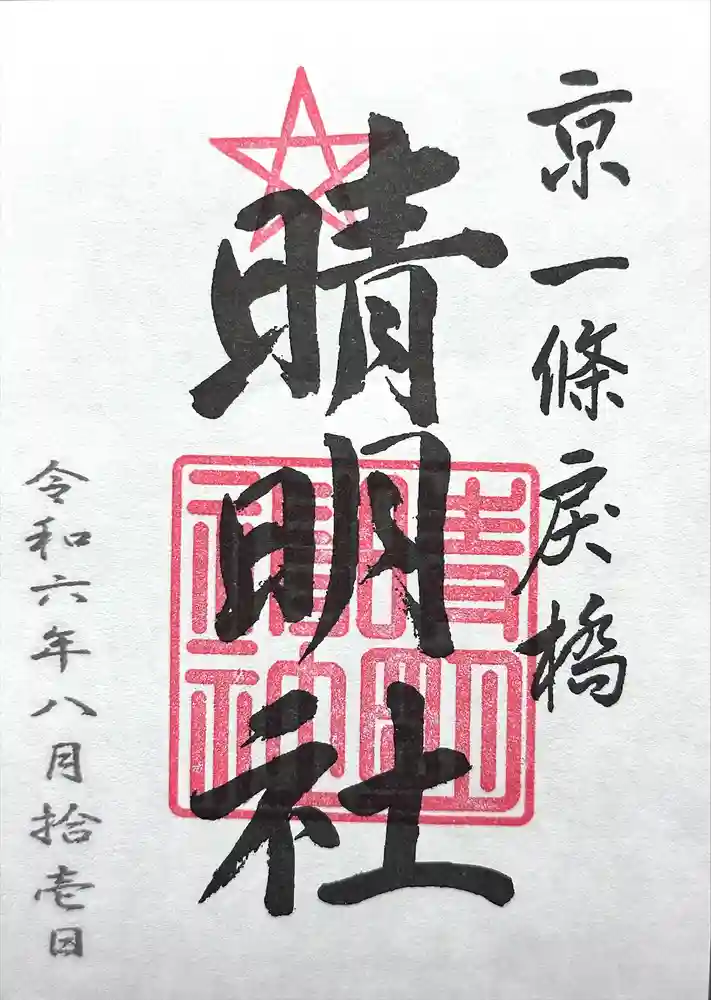 京一條戻橋
晴明社
晴明神社
令和六年八月拾壱日